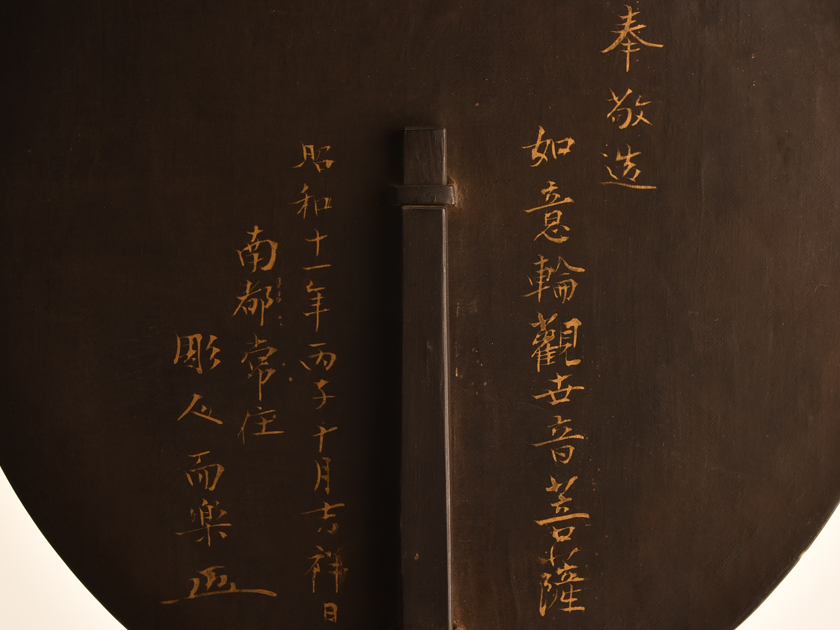 奉敬造
如意輪觀世音菩薩
昭和十一年丙子十月吉祥日
南都常住
彫人而楽